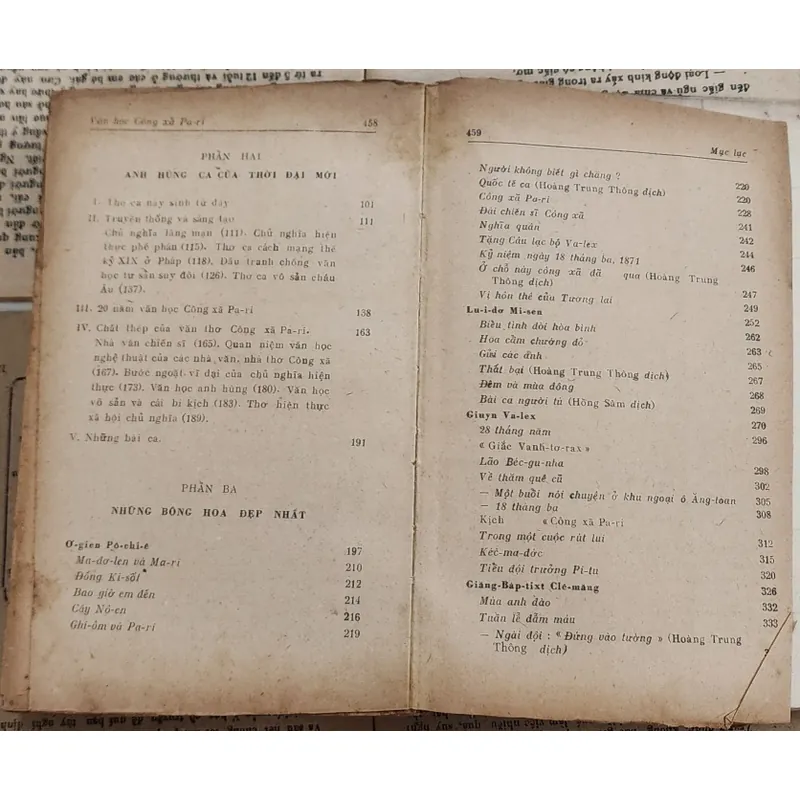 Văn học Công xã Pa-ri 458
PHẦN HAI
ANH HÙNG CA CỦA THỜI ĐẠI MỚI
I. Thơ ca nảy sinh từ đây 101
II. Truyền thống và sáng tạo 111
Chủ nghĩa lãng mạn (111). Chủ nghĩa hiện
thực phê phán (115). Thơ ca cách mạng thế
kỷ XIX ở Pháp (118). Đấu tranh chống văn
học tư sản suy đồi (126). Thơ ca vô sản châu
Âu (137).
III. 20 năm văn học Công xã Pa-ri 158
IV. Chất thép của văn thơ Công xã Pa-ri. 163
Nhà văn chiến sĩ (165). Quan niệm văn học
nghệ thuật của các nhà văn, nhà thơ Công xã
(167). Bước ngoặt vĩ đại của chủ nghĩa hiện
thực (173). Văn học anh hùng (180). Văn học
vô sản và cái bi kịch (183). Thơ hiện thực
xã hội chủ nghĩa (189).
V. Những bài ca. 191
PHẦN BA
NHỮNG BÔNG HOA ĐẸP NHẤT
Ơ-gien Pô-chi-ê 197
Ma-đơ-len và Ma-ri 210
Đồng Ki-sốt 212
Bao giờ em đến 214
Cây Nô-en 216
Ghi-ôm và Pa-ri 219
459 Mục lục
Người không biết gì chăng ? 220
Quốc tế ca (Hoàng Trung Thông dịch) 220
Công xã Pa-ri 228
Đài chiến sĩ Công xã 241
Nghĩa quân 242
Tặng Câu lạc bộ Va-lex 244
Kỷ niệm ngày 18 tháng ba, 1871 246
Ở chỗ này công xã đã qua (Hoàng Trung
Thông dịch) 247
Vị hôn thê của Tương lai 249
Lu-i-dơ Mi-sen 252
Biểu tình đòi hòa bình 262
Hoa cẩm chướng đỏ 263
Gửi các anh 265
Thất bại (Hoàng Trung Thông dịch) 267
Đêm và mùa đông 268
Bài ca người tù (Hồng Sâm dịch) 269
Giuyn Va-lex 270
28 tháng năm 296
« Giắc Vanh-tơ-rax »
Lão Béc-gu-nha 298
Về thăm quê cũ 302
— Một buổi nói chuyện ở khu ngoại ô Ăng-toan 305
— 18 tháng ba 308
Kịch « Công xã Pa-ri
Trong một cuộc rút lui 312
Kéc-ma-đéc 315
Tiểu đội trưởng Pi-tu 320
Giăng-Báp-tixt Clê-măng 326
Mùa anh đào 332
Tuần lễ đẫm máu 333
— Ngài đội : « Đứng vào tường » (Hoàng Trung
Thông dịch)